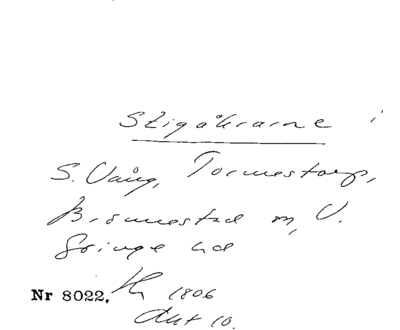 Stigåkrarne i
S. Vång, Tormestorp,
Brönnestad sn, V.
Göinge hd
Nr 8022. 1806
Akt 10.